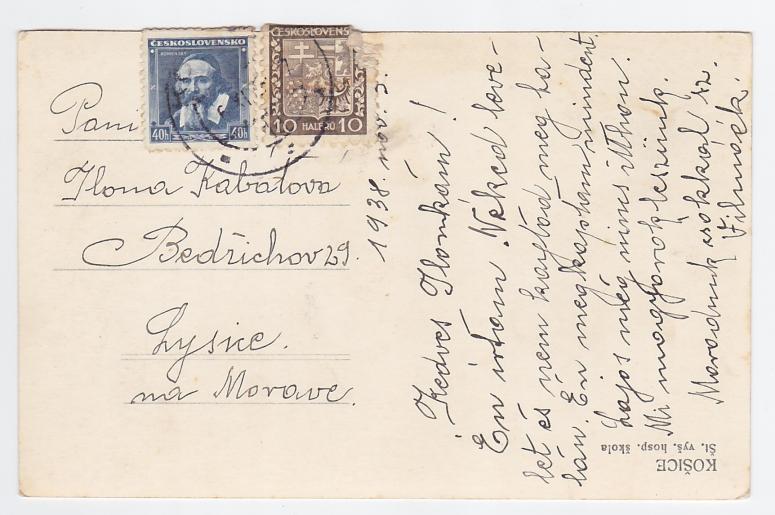 ČESKOSLOVENSKO
KOMENSKÝ
40h 40h
ČESKOSLOVENS
10 HALÉŘŮ 10
Paní
Ilona Kabátova
Bedřichov 29.
Lysice.
na Moravě.
1938 nov. 3.
Kedves Ilonkám!
Én írtam Néked leve-
let és nem kaptad meg ta-
lán. Én megkaptam mindent.
Lajos még nincs itthon.
Mi magyarok leszünk.
Maradunk csókkal sz.
Vilmáék.
KOŠICE
Št. vyš. hosp. škola